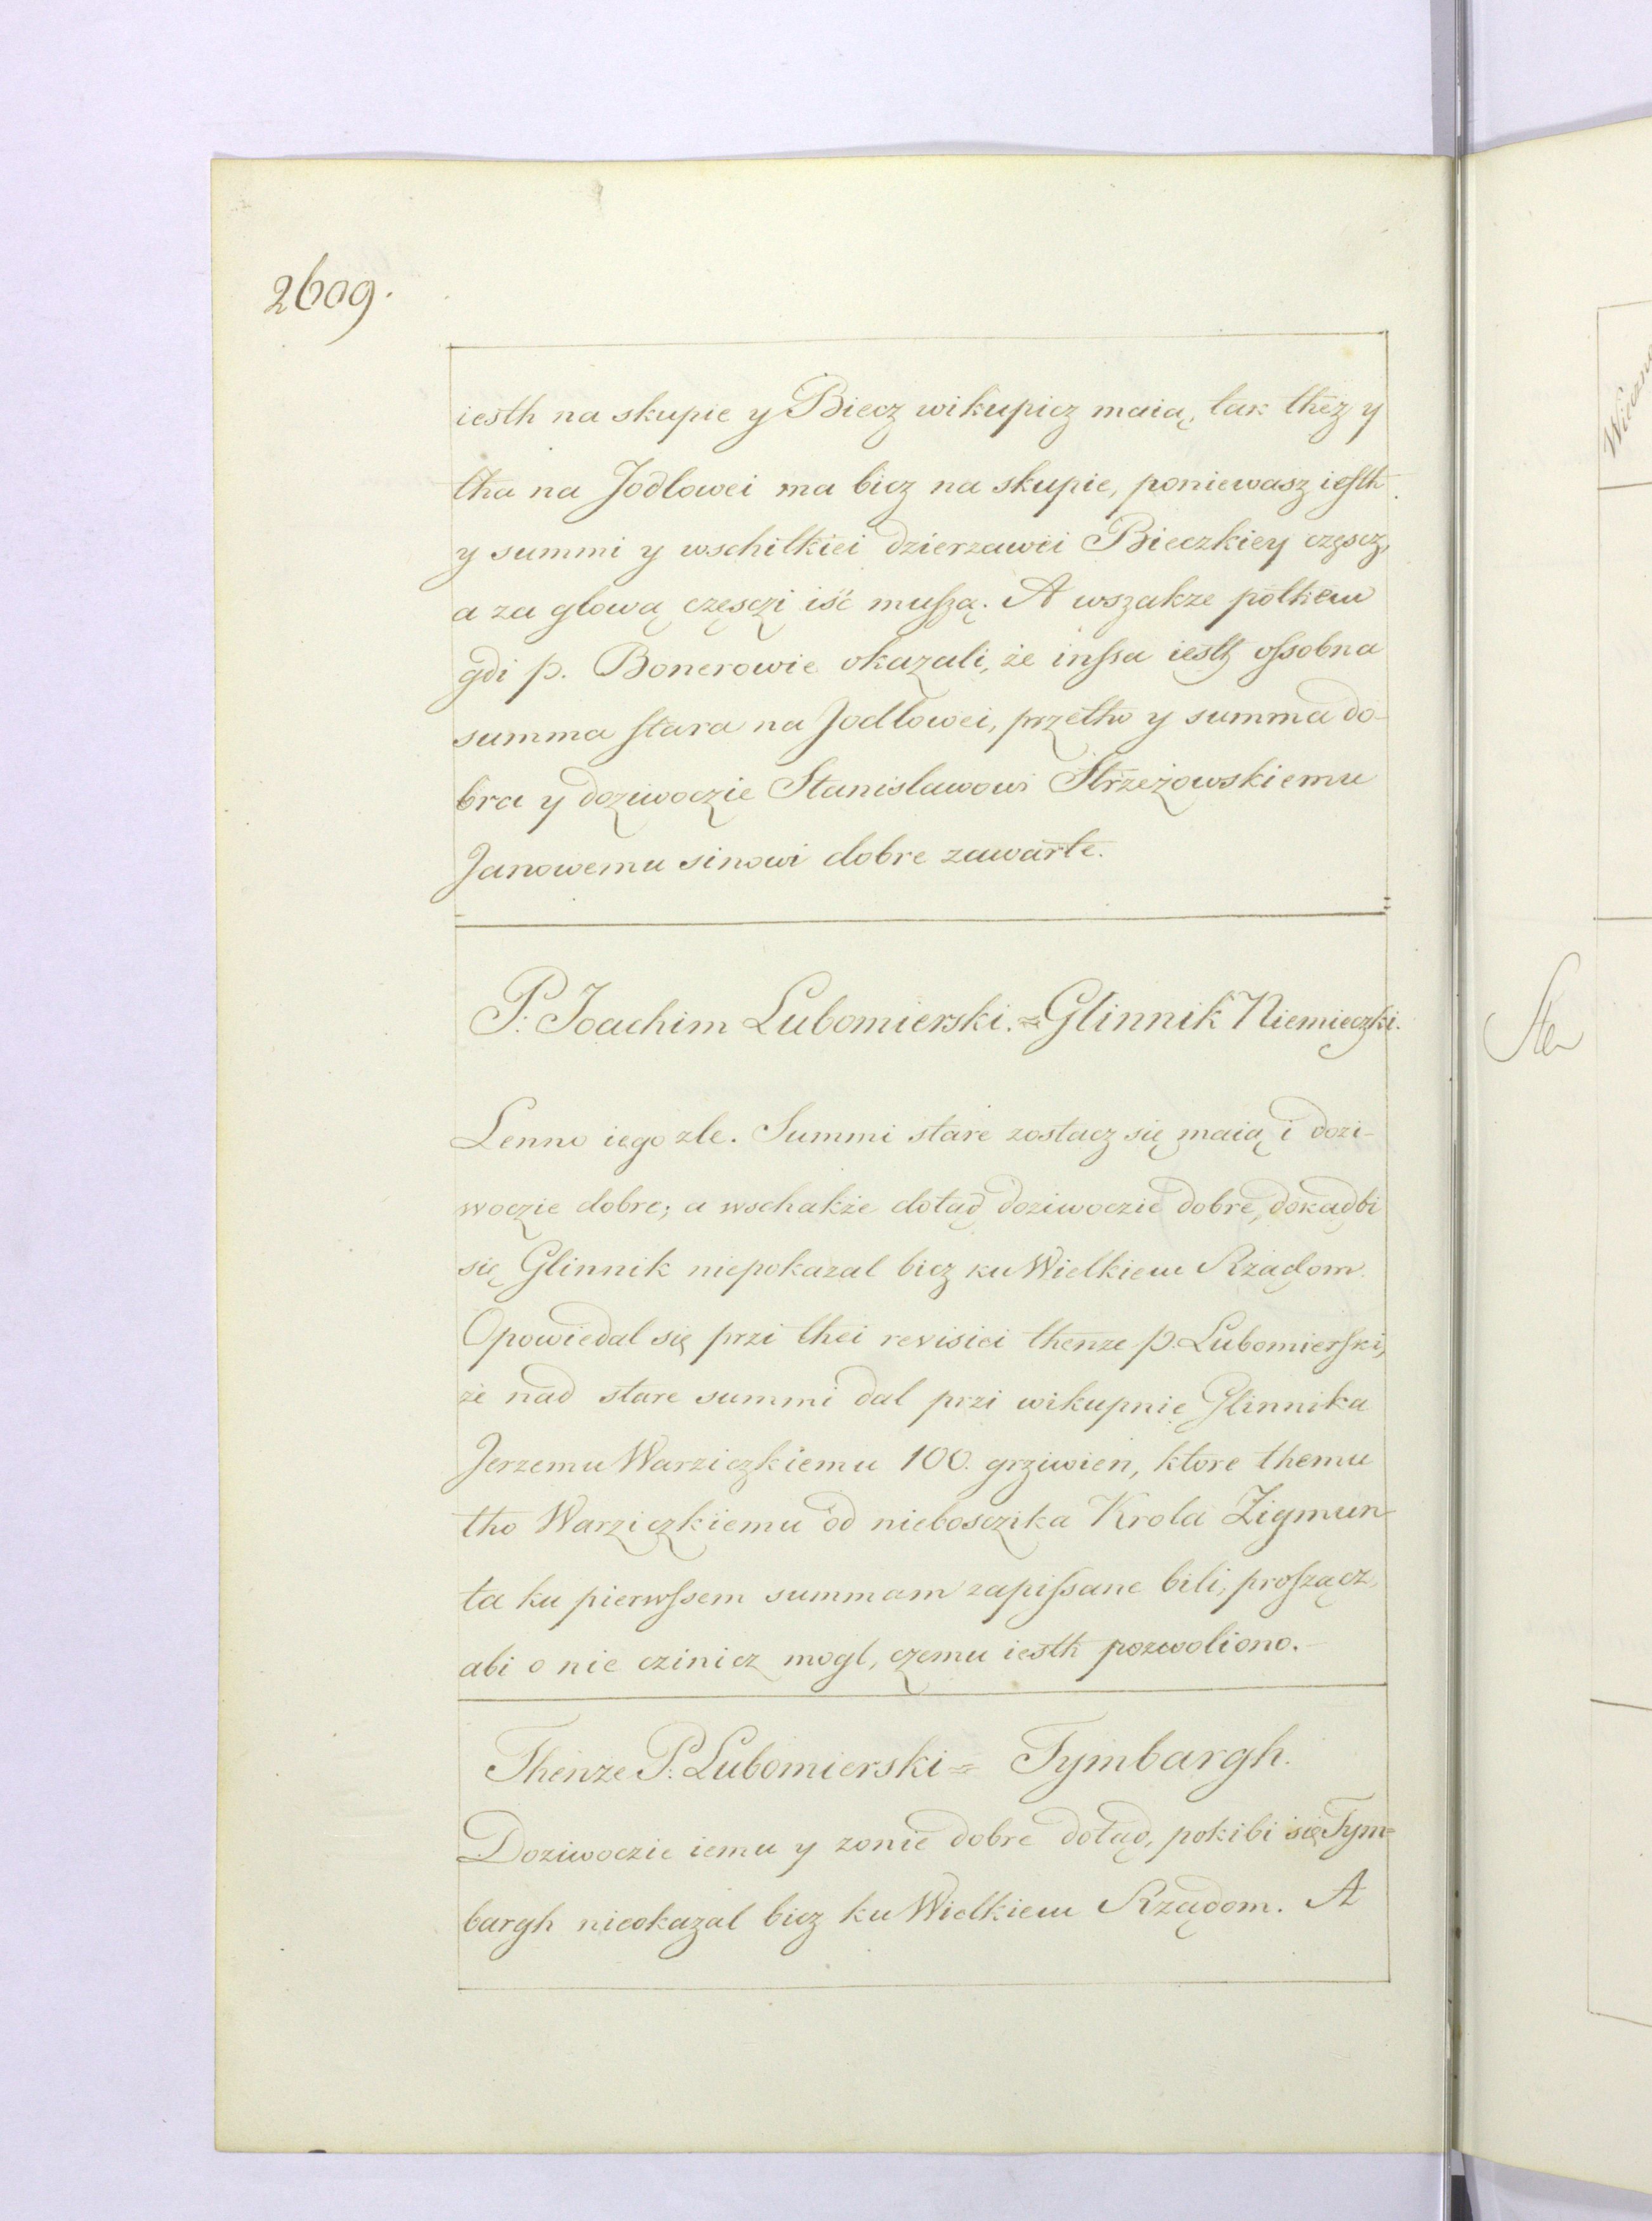 2609.
iesth na skupie y Biecz wikupicz maią, tak thez y
tha na Jodlowei ma bicz na skupie, poniewasz iesth
y summi y wschitkiei dzierzawei Bieczkiey częscz,
a za glową częsczi iść muszą. A wszakze potkem
gdi p. Bonerowie okazali, że inssa iesth ossobna
summa stara na Jodlowei, przetho y summa do-
bra y doziwoczie Stanislawowi Strzeżowskiemu
Janowemu sinowi dobre zawarte.
P. Joachim Lubomierski. = Glinnik Niemieczki.
Lenno iego zle. Summi stare zostacz się maią i dozi-
woczie dobre; a wschakże dotąd doziwoczie dobre, dokądbi
się Glinnik niepokazal bicz ku Wielkiem Rządom.
Opowiedal się przi thei revisiei thenze p. Lubomierski,
że nad stare summi dal przi wikupnie Glinnika
Jerzemu Warziczkiemu 100. grziwien, ktore themu
tho Warziczkiemu od nieboszczika Krola Zigmun-
ta ku pierwssem summam zapissane bili, proszącz,
abi o nie czinicz mogl, czemu iesth pozwoliono.
Thenze P. Lubomierski = Tymbargh.
Doziwoczie iemu y zonie dobre dotąd, pokibi się Tym=
bargh nieokazal bicz ku Wielkiem Rządom. A